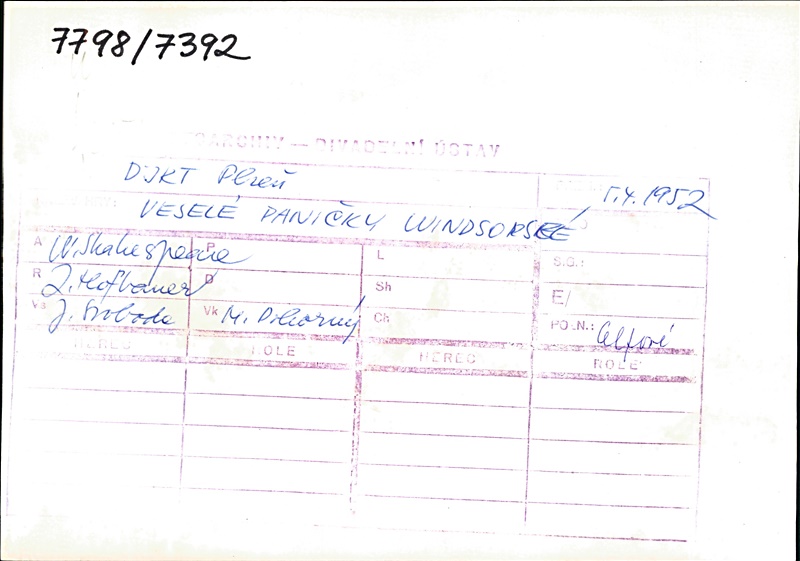 7798/7392
ARCHIV — DIVADELNÍ ÚSTAV
DJKT Plzeň
5.4.1952
VESELÉ PANIČKY WINDSORSKÉ
A W. Shakespeare P L S.G.:
R Z. Hofbauer D Sh E/
Vs J. Svoboda Vk M. Pokorný Ch POZN.:
HEREC ROLE HEREC ROLE